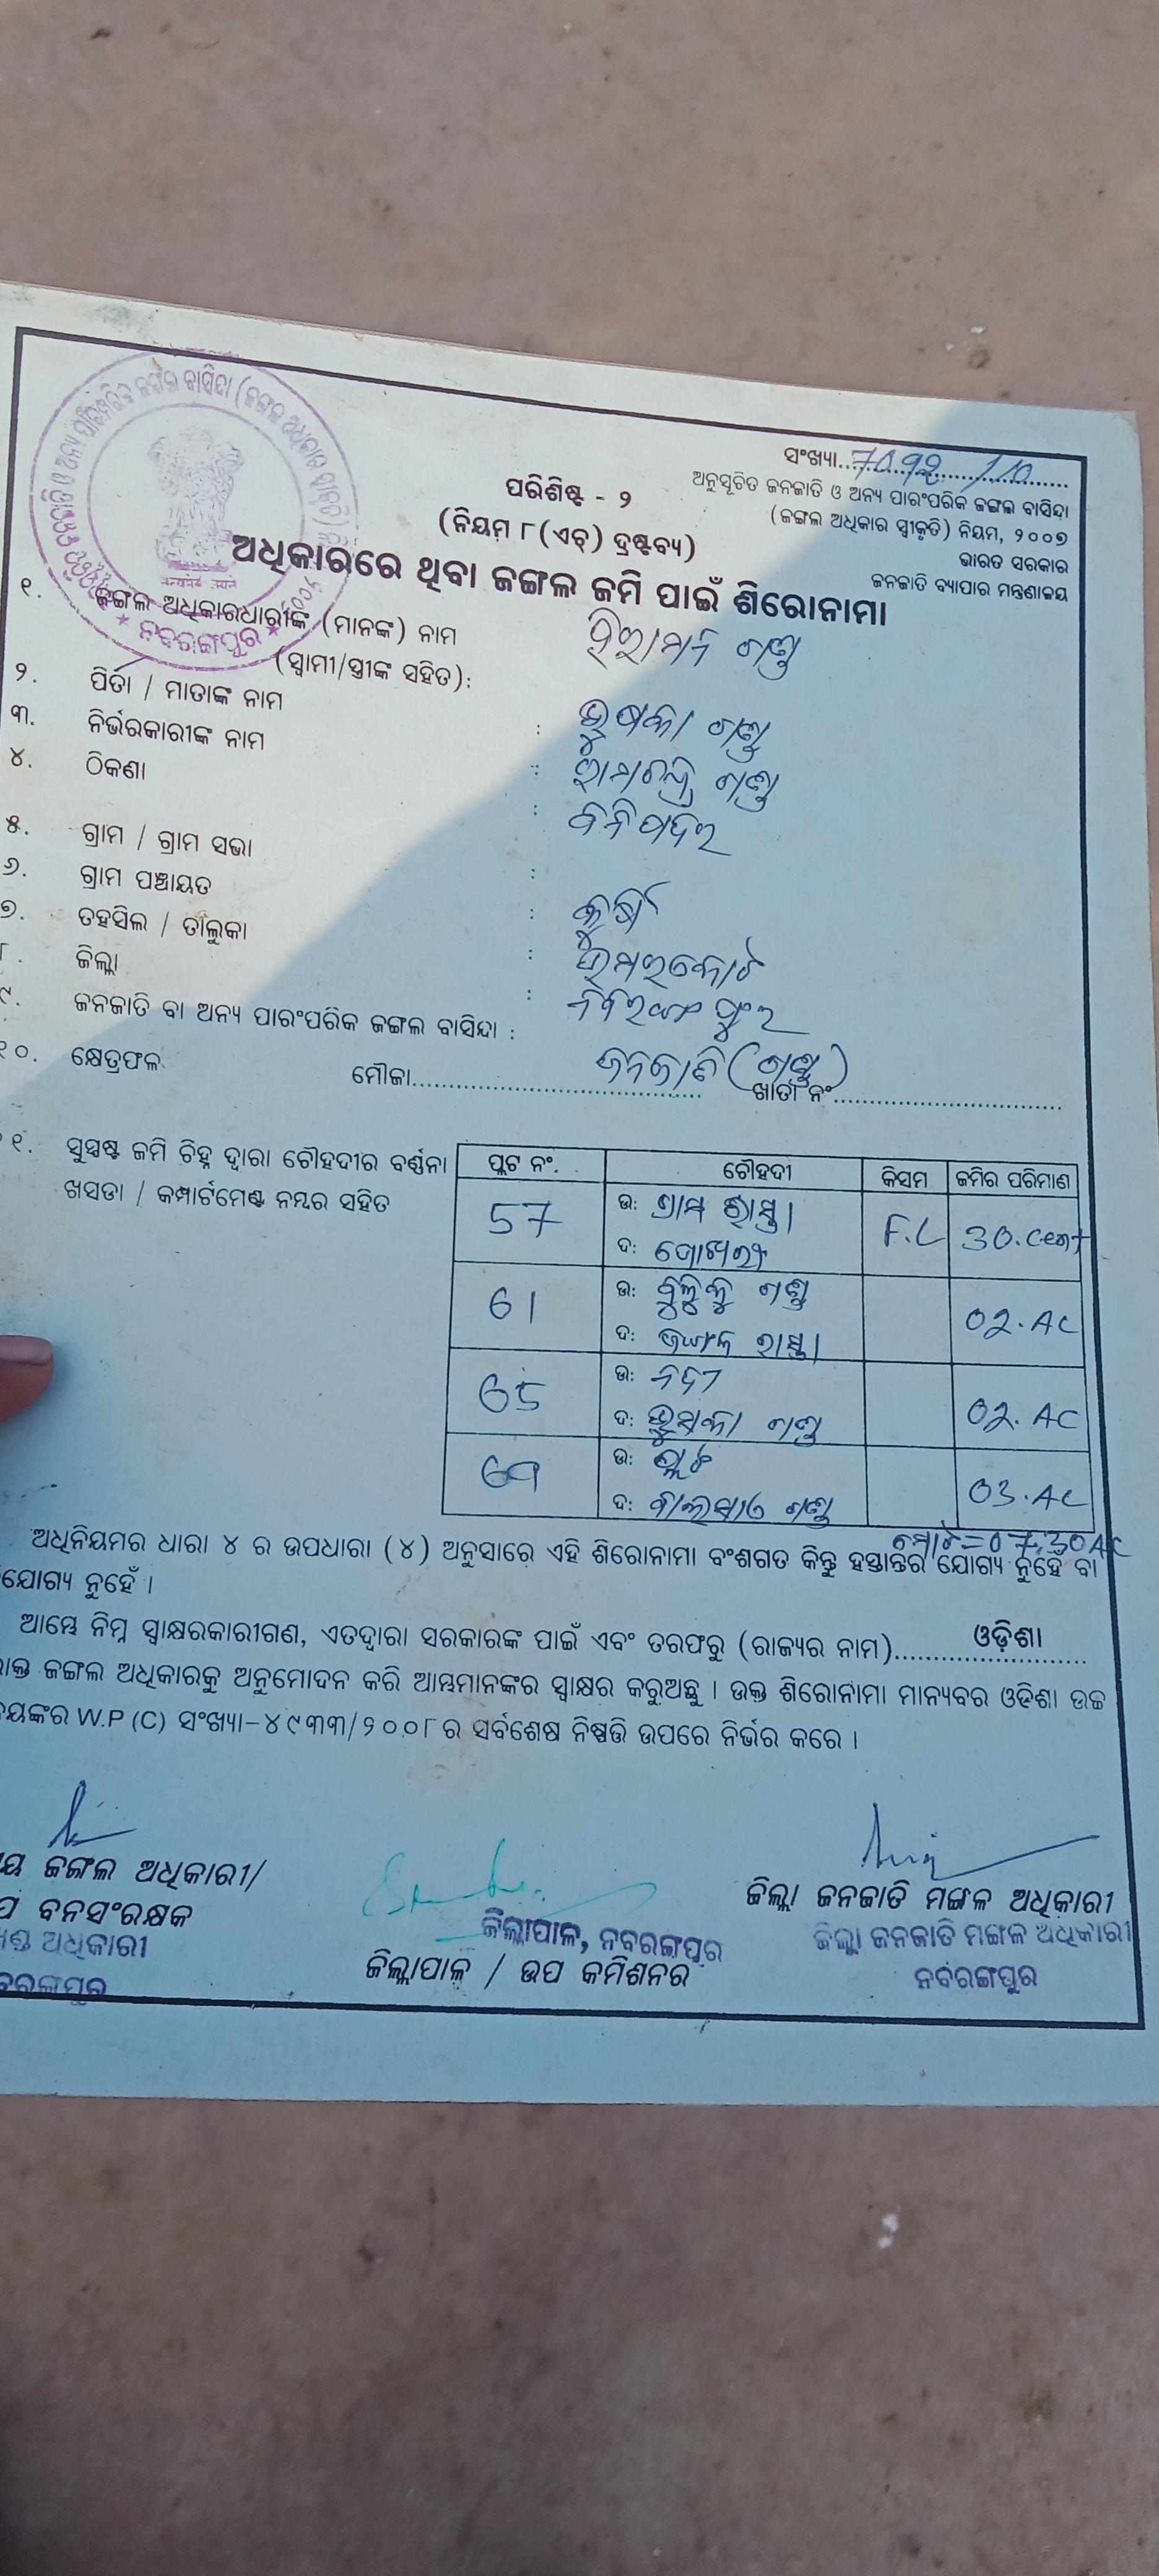 ସଂଖ୍ୟା...7092/10
ଅନୁସୂଚିତ ଜନଜାତି ଓ ଅନ୍ୟ ପାରଂପରିକ ଜଙ୍ଗଲ ବାସିନ୍ଦା
(ଜଙ୍ଗଲ ଅଧିକାର ସ୍ୱୀକୃତି) ନିୟମ, ୨୦୦୭
ଭାରତ ସରକାର
ଜନଜାତି ବ୍ୟାପାର ମନ୍ତ୍ରଣାଳୟ
ପରିଶିଷ୍ଟ - ୨
(ନିୟମ ୮(ଏଚ୍) ଦ୍ରଷ୍ଟବ୍ୟ)
ଅଧିକାରରେ ଥିବା ଜଙ୍ଗଲ ଜମି ପାଇଁ ଶିରୋନାମା
୧. ଜଙ୍ଗଲ ଅଧିକାରଧାରୀଙ୍କ (ମାନଙ୍କ) ନାମ ହିରାମନ ଗଣ୍ଡ
(ସ୍ୱାମୀ/ସ୍ତ୍ରୀଙ୍କ ସହିତ):
୨. ପିତା / ମାତାଙ୍କ ନାମ : ଭୁଷକା ଗଣ୍ଡ
୩. ନିର୍ଭରକାରୀଙ୍କ ନାମ : ରାମଚନ୍ଦ୍ର ଗଣ୍ଡ
୪. ଠିକଣା :
୫. ଗ୍ରାମ / ଗ୍ରାମ ସଭା :
୬. ଗ୍ରାମ ପଞ୍ଚାୟତ :
୭. ତହସିଲ / ତାଲୁକା : ଉମରକୋଟ
୮. ଜିଲ୍ଲା : ନବରଙ୍ଗପୁର
୯. ଜନଜାତି ବା ଅନ୍ୟ ପାରଂପରିକ ଜଙ୍ଗଲ ବାସିନ୍ଦା : ଜନଜାତି (ଗଣ୍ଡ)
୧୦. କ୍ଷେତ୍ରଫଳ ମୌଜା........ ଖାତା ନଂ........
୧୧. ସୁସ୍ପଷ୍ଟ ଜମି ଚିହ୍ନ ଦ୍ୱାରା ଚୌହଦୀର ବର୍ଣ୍ଣନା
ଖସଡା / କମ୍ପାର୍ଟମେଣ୍ଟ ନମ୍ବର ସହିତ
ପ୍ଲଟ ନଂ. ଚୌହଦୀ କିସମ ଜମିର ପରିମାଣ
57 ଉ: ଗ୍ରାମ ରାସ୍ତା F.L 30.cent
ଦ: ପୋଖରୀ
61 ଉ: ବୁଲୁକୁ ଗଣ୍ଡ 02.AC
ଦ: ଜଙ୍ଗଲ ରାସ୍ତା
65 ଉ: ନଦୀ 02.AC
ଦ: ଭୁଷକା ଗଣ୍ଡ
69 ଉ: ପ୍ଲଟ 03.AC
ଦ: ଗଣ୍ଡ
ମୋଟ=07.30AC
ଅଧିନିୟମର ଧାରା ୪ ର ଉପଧାରା (୪) ଅନୁସାରେ ଏହି ଶିରୋନାମା ବଂଶଗତ କିନ୍ତୁ ହସ୍ତାନ୍ତର ଯୋଗ୍ୟ ନୁହେଁ ବା
ଯୋଗ୍ୟ ନୁହେଁ ।
ଆମ୍ଭେ ନିମ୍ନ ସ୍ୱାକ୍ଷରକାରୀଗଣ, ଏତଦ୍ୱାରା ସରକାରଙ୍କ ପାଇଁ ଏବଂ ତରଫରୁ (ରାଜ୍ୟର ନାମ)........ଓଡ଼ିଶା
ଜଙ୍ଗଲ ଅଧିକାରକୁ ଅନୁମୋଦନ କରି ଆମ୍ଭମାନଙ୍କର ସ୍ୱାକ୍ଷର କରୁଅଛୁ । ଉକ୍ତ ଶିରୋନାମା ମାନ୍ୟବର ଓଡିଶା ଉଚ୍ଚ
W.P (C) ସଂଖ୍ୟା-୪୯୩୩/୨୦୦୮ ର ସର୍ବଶେଷ ନିଷ୍ପତ୍ତି ଉପରେ ନିର୍ଭର କରେ ।
ଜଙ୍ଗଲ ଅଧିକାରୀ/
ବନସଂରକ୍ଷକ
ଅଧିକାରୀ
ଜିଲ୍ଲାପାଳ, ନବରଙ୍ଗପୁର
ଜିଲ୍ଲାପାଳ / ଉପ କମିଶନର
ଜିଲ୍ଲା ଜନଜାତି ମଙ୍ଗଳ ଅଧିକାରୀ
ଜିଲ୍ଲା ଜନଜାତି ମଙ୍ଗଳ ଅଧିକାରୀ
ନବରଙ୍ଗପୁର